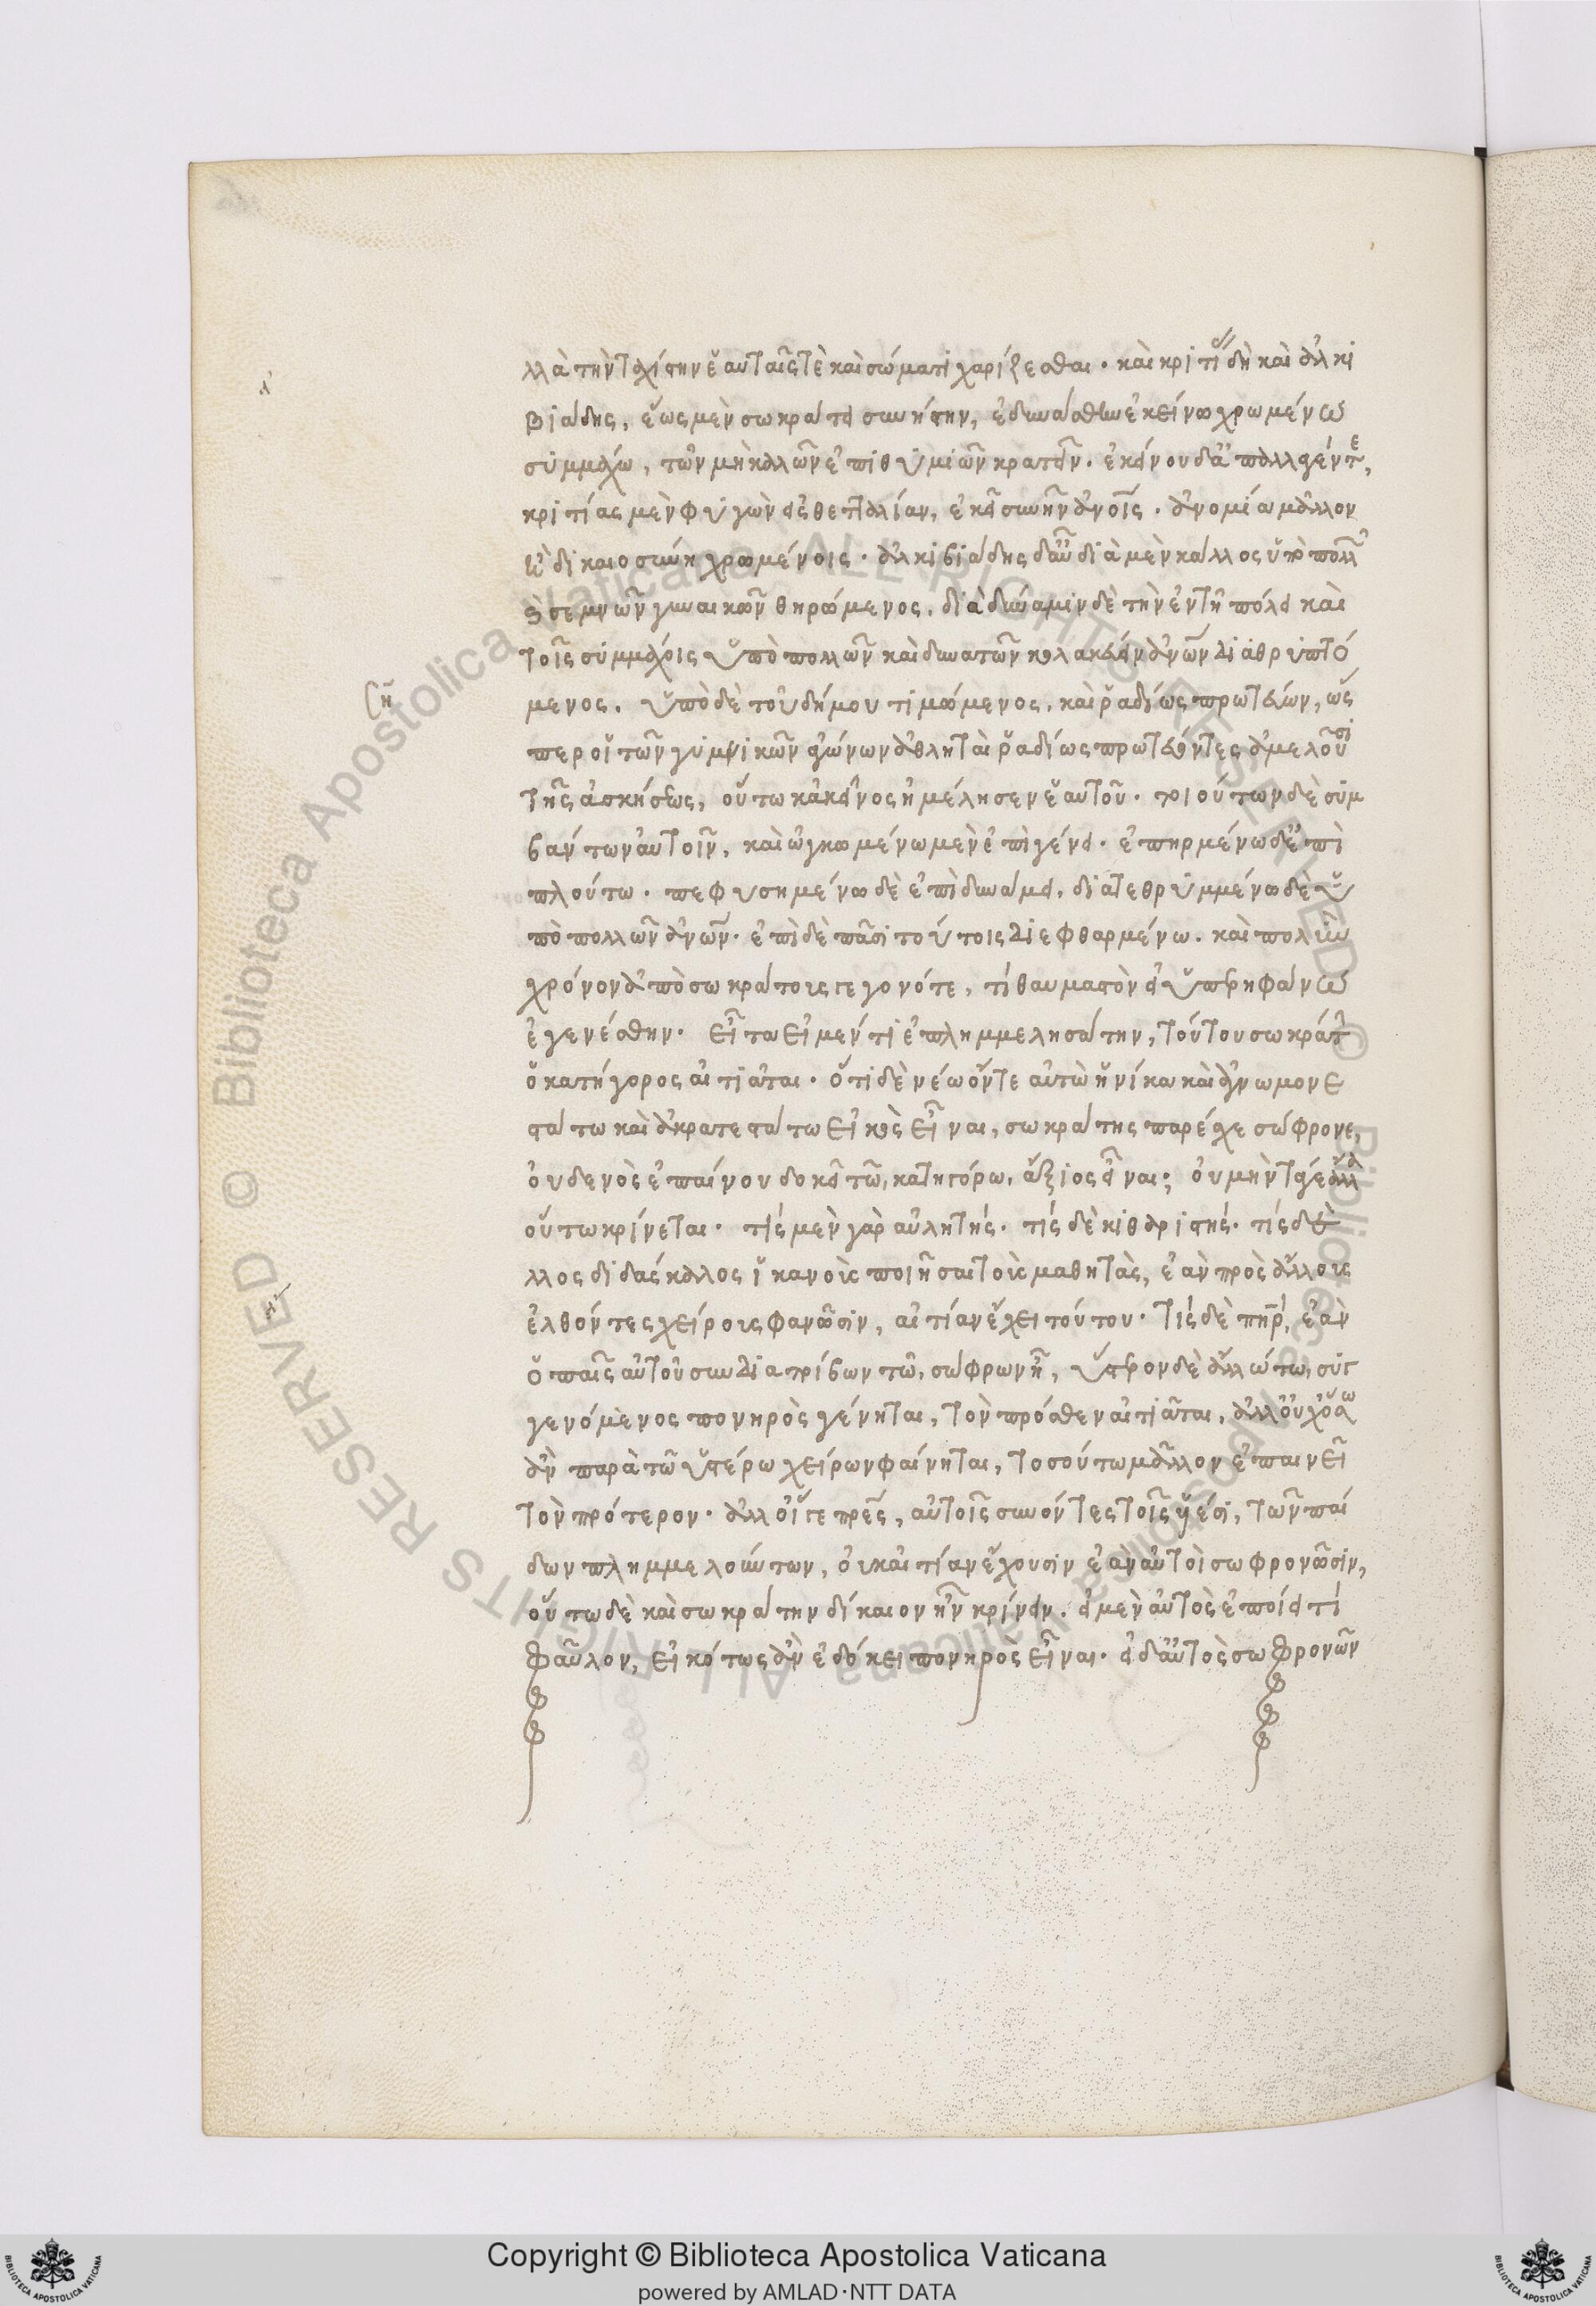 λλὰ τὴν ταχίστην ἑαυταῖς τὲ καὶ σώματι χαρίζεσθαι. καὶ κριτί δὴ καὶ ἀλκι
βιάδης, ἕως μὲν σωκράτει συνήστην, ἐδυνάσθην ἐκείνω χρωμένω
συμμάχω, τῶν μὴ καλῶν ἐπιθυμιῶν κρατεῖν. ἐκείνου δ' ἀπαλλαγέντε,
κριτίας μὲν φυγὼν εἰς θετταλίαν, ἐκεῖ συνῆν ἀνοῖς. ἀνομία μᾶλλον
ἢ δικαιοσύνη χρωμένοις. ἀλκιβιάδης δ' αὖ διὰ μὲν κάλλος ὑπὸ πολλῶν
καὶ σεμνῶν γυναικῶν θηρώμενος. διὰ δύναμιν δὲ τὴν ἐν τῆ πόλει καὶ
τοῖς συμμάχοις ὑπὸ πολλῶν καὶ δυνατῶν κολακεύειν ἀνῶν διαθρυπτό
μενος. ὑπὸ δὲ τοῦ δήμου τιμώμενος. καὶ ῥαδίως πρωτεύων, ὥς
περ οἱ τῶν γυμνικῶν ἀγώνων ἀθληταὶ ῥαδίως πρωτεύοντες ἀμελοῦσι
τῆς ἀσκήσεως, οὕτω κἀκεῖνος ἠμέλησεν ἑαυτοῦ. τοιούτων δὲ συμ
βάντων αὐτοῖν, καὶ ὠγκωμένω μὲν ἐπὶ γένει. ἐπηρμένω δ' ἐπὶ
πλούτω. πεφυσημένω δὲ ἐπὶ δυνάμει. διατεθρυμμένω δὲ ὑ
πὸ πολλῶν ἀνῶν. ἐπὶ δὲ πᾶσι τούτοις διεφθαρμένω. καὶ πολὺν
χρόνον ἀπὸ σωκράτους γεγονότε, τί θαυμαστὸν εἰ ὑπερηφάνω
ἐγενέσθην. εἶτα εἰ μέν τι ἐπλημμελησάτην, τούτου σωκράτ
ὁ κατήγορος αἰτιᾶται. ὅτι δὲ νέω ὄντε αὐτὼ ἡνίκα καὶ ἀγνωμονε
στάτω καὶ ἀκρατεστάτω εἰκὸς εἶναι, σωκράτης παρέχε σώφρονε,
οὐδενὸς ἐπαίνου δοκεῖ τῶ κατηγόρω ἄξιος εἶναι; οὐ μὴν τάγε ἄλλα
οὕτω κρίνεται. τίς μὲν γὰρ αὐλητής. τίς δὲ κιθαριστής. τίς δὲ ἄ
λλος διδάσκαλος ἱκανοὺς ποιήσας τοὺς μαθητὰς, ἐὰν πρὸς ἄλλους
ἐλθόντες χείρους φανῶσιν, αἰτίαν ἔχει τούτου. τίς δὲ πηρ, ἐὰν
ὁ παῖς αὐτοῦ συνδιατρίβων τω, σώφρων ῆ, ὕστερον δὲ ἄλλω τω, συγ
γενόμενος πονηρὸς γένηται, τὸν πρόσθεν αἰτιᾶται, ἀλλ' οὐχ ὅσω
ἂν παρὰ τῶ ὑστέρω χείρων φαίνηται, τοσούτω μᾶλλον ἐπαινεῖ
τὸν πρότερον. ἀλλ' οἵ γε πρες, αὐτοὶ συνόντες τοῖς υἱέσι, τῶν παί
δων πλημμελούντων, οὐκ αἰτίαν ἔχουσιν ἐὰν αὐτοὶ σωφρονῶσιν,
οὕτω δὲ καὶ σωκράτην δίκαιον ἦν κρίνειν. εἰ μὲν αὐτὸς ἐποίει τί
φαῦλον, εἰκότως ἂν ἐδόκει πονηρὸς εἶναι. εἰ δ' αὐτὸς σωφρονῶν
Copyright © Biblioteca Apostolica Vaticana
powered by AMLAD·NTT DATA